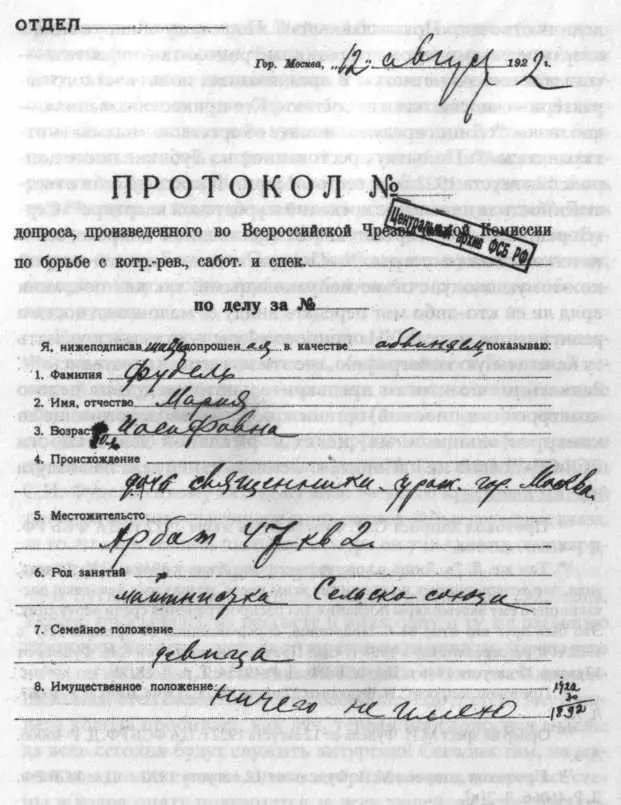 ОТДЕЛ
Гор. Москва, "12" август 1922 г.
ПРОТОКОЛ №
Центральный архив ФСБ РФ
допроса, произведенного во Всероссийской Чрезвычайной Комиссии
по борьбе с котр.-рев., сабот. и спек.
по делу за №
Я, нижеподписавшаяся допрошенная в качестве обвиняем показываю:
1. Фамилия Фудель
2. Имя, отчество Мария
3. Возраст Иосифовна
30 л.
4. Происхождение
дочь священника гор. Москва
5. Местожительство
Арбат 47 кв 2.
6. Род занятий
машинистка Сельско союза
7. Семейное положение
девица
8. Имущественное положение ничего не имею
1922
30
1892